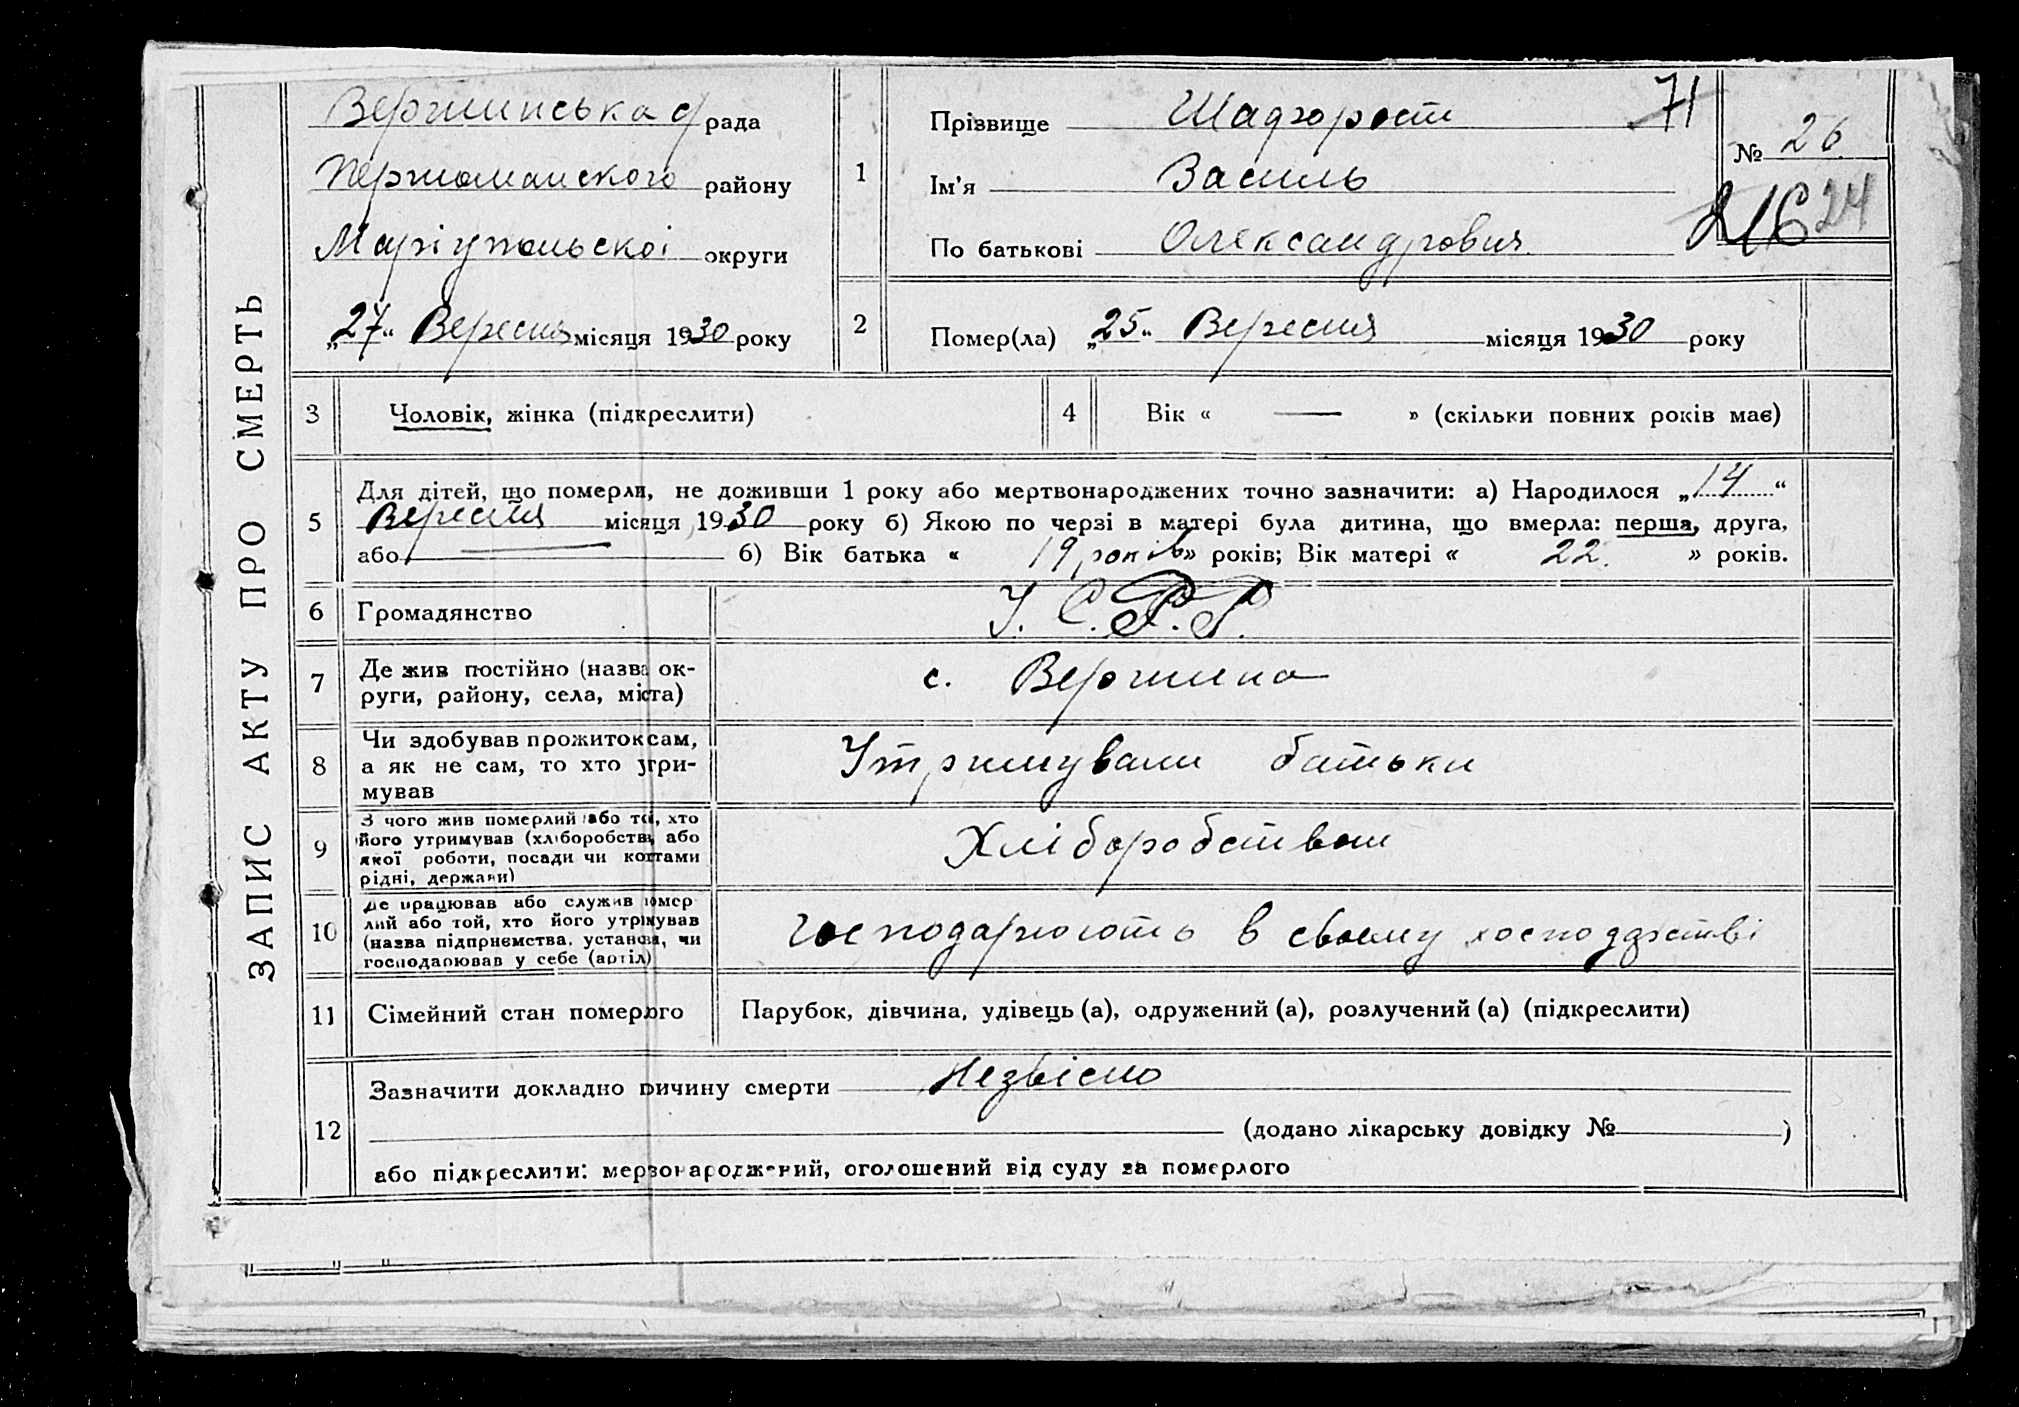 ЗАПИС АКТУ ПРО СМЕРТЬ
Вершинська с/рада
Першоманського району
Маріупольскоі округи
„27“ Вересня місяця 1930 року
1
Прізвище Шадгорост 71
Ім'я Василь
По батькові Олександрович
№ 26
216 24
2
Помер(ла) „25“ Вересня місяця 1930 року
3 Чоловік, жінка (підкреслити)
4 Вік « — » (скільки повних років має)
5
Для дітей, що померли, не доживши 1 року або мертвонароджених точно зазначити: а) Народилося „14“
Вересня місяця 1930 року б) Якою по черзі в матері була дитина, що вмерла: перша, друга,
або — б) Вік батька « 19 років » років; Вік матері « 22. » років.
6 Громадянство У. С. Р. Р.
7 Де жив постійно (назва ок-
руги, району, села, міста)
с. Вершина
8 Чи здобував прожиток сам,
а як не сам, то хто утри-
мував
Утримували батьки
9 З чого жив померлий або той, хто
його утримував (хліборобства, або
якої роботи, посади чи коштами
рідні, держави)
Хліборобством
10 Де працював або служив помер-
лий або той, хто його утримував
(назва підприємства, установи, чи
господарював у себе (артіл)
господарюють в своєму господарстві
11 Сімейний стан померлого Парубок, дівчина, удівець (а), одружений (а), розлучений (а) (підкреслити)
12
Зазначити докладно причину смерти Незвісно
(додано лікарську довідку № )
або підкреслити: мервонароджений, оголошений від суду за померлого